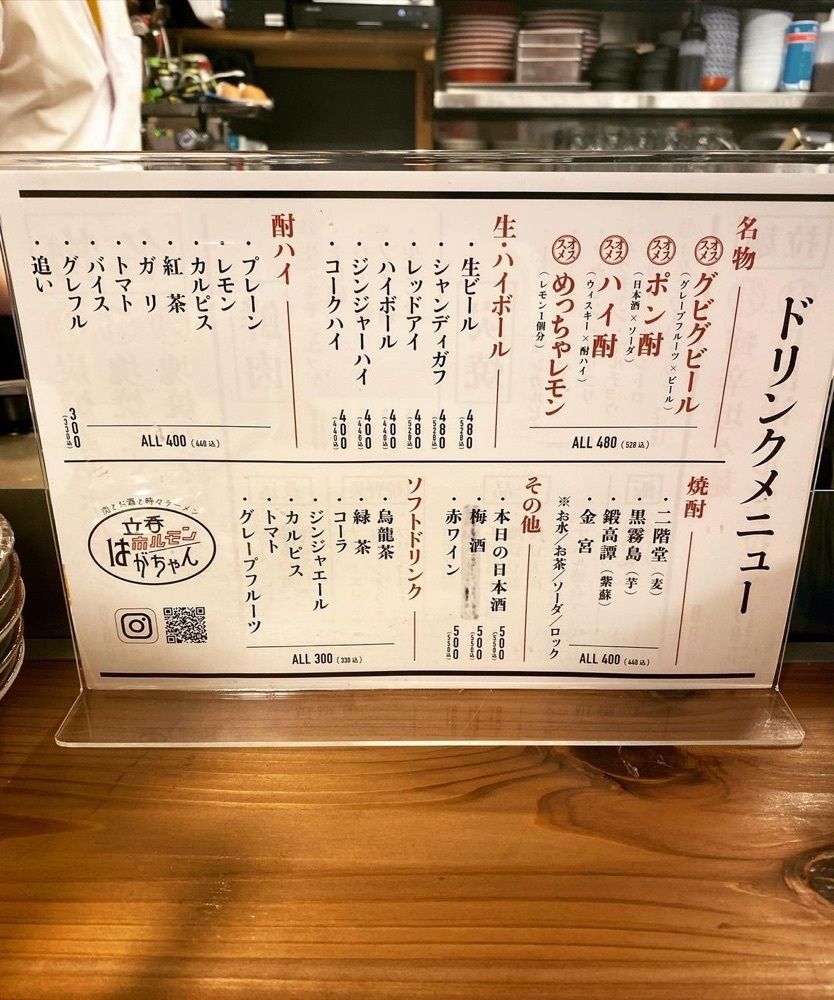 ドリンクメニュー
名物
オススメ
グビグビール
（グレープフルーツ×ビール）
オススメ
ポン酎
（日本酒×ソーダ）
オススメ
ハイ酎
（ウィスキー×酎ハイ）
オススメ
めっちゃレモン
（レモン1個分）
ALL 480（528込）
生・ハイボール
・生ビール 480（528込）
・シャンディガフ 480（528込）
・レッドアイ 480（528込）
・ハイボール 400（440込）
・ジンジャーハイ 400（440込）
・コークハイ 400（440込）
酎ハイ
・プレーン
・レモン
・カルピス
・紅茶
・ガリ
・トマト
・バイス
・グレフル
ALL 400（440込）
・追い 300（330込）
焼酎
・二階堂（麦）
・黒霧島（芋）
・鍛高譚（紫蘇）
・金宮
※お水／お茶／ソーダ／ロック
ALL 400（440込）
その他
・本日の日本酒 500（550込）
・梅酒 500（550込）
・赤ワイン 500（550込）
ソフトドリンク
・烏龍茶
・緑茶
・コーラ
・ジンジャエール
・カルピス
・トマト
・グレープフルーツ
ALL 300（330込）
肉とお酒と時々ラーメン
立呑
ホルモン
はがちゃん